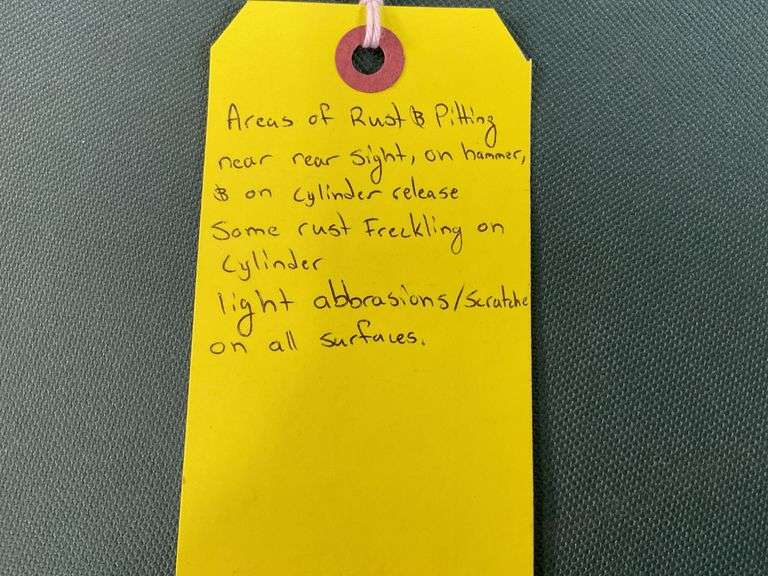 Areas of Rust & Pitting
near rear sight, on hammer,
& on cylinder release
Some rust Freckling on
Cylinder
light abbrasions/scratche
on all surfaces.